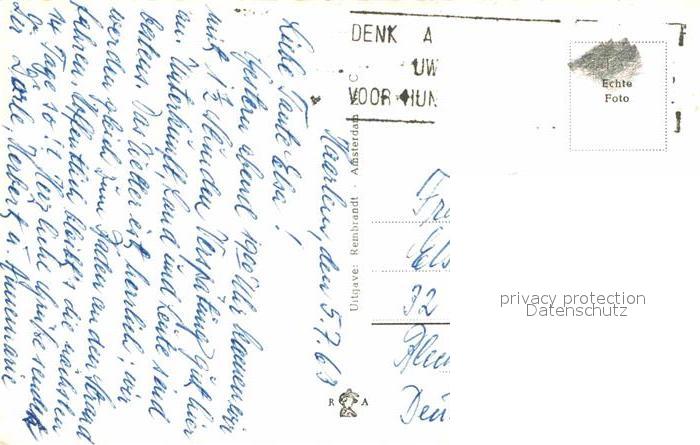 DENK A
UW
VOOR HUN
Echte
Foto
Haarlem, den 5.7.63
Liebe Tante Elsa!
Gestern abend 19.00 Uhr kamen wir
mit 1½ Stunden Verspätung gut hier
an. Unterkunft, Land und Leute sind
bestens. Das Wetter ist herrlich, wir
werden gleich zum Baden an den Strand
fahren. Hoffentlich bleibt's die nächsten
14 Tage so! Herzliche Grüße senden
Dir Dorle, Herbert u. Annemarie
Uitgave: Rembrandt · Amsterdam C
R A
Els
32
Deu
privacy protection
Datenschutz